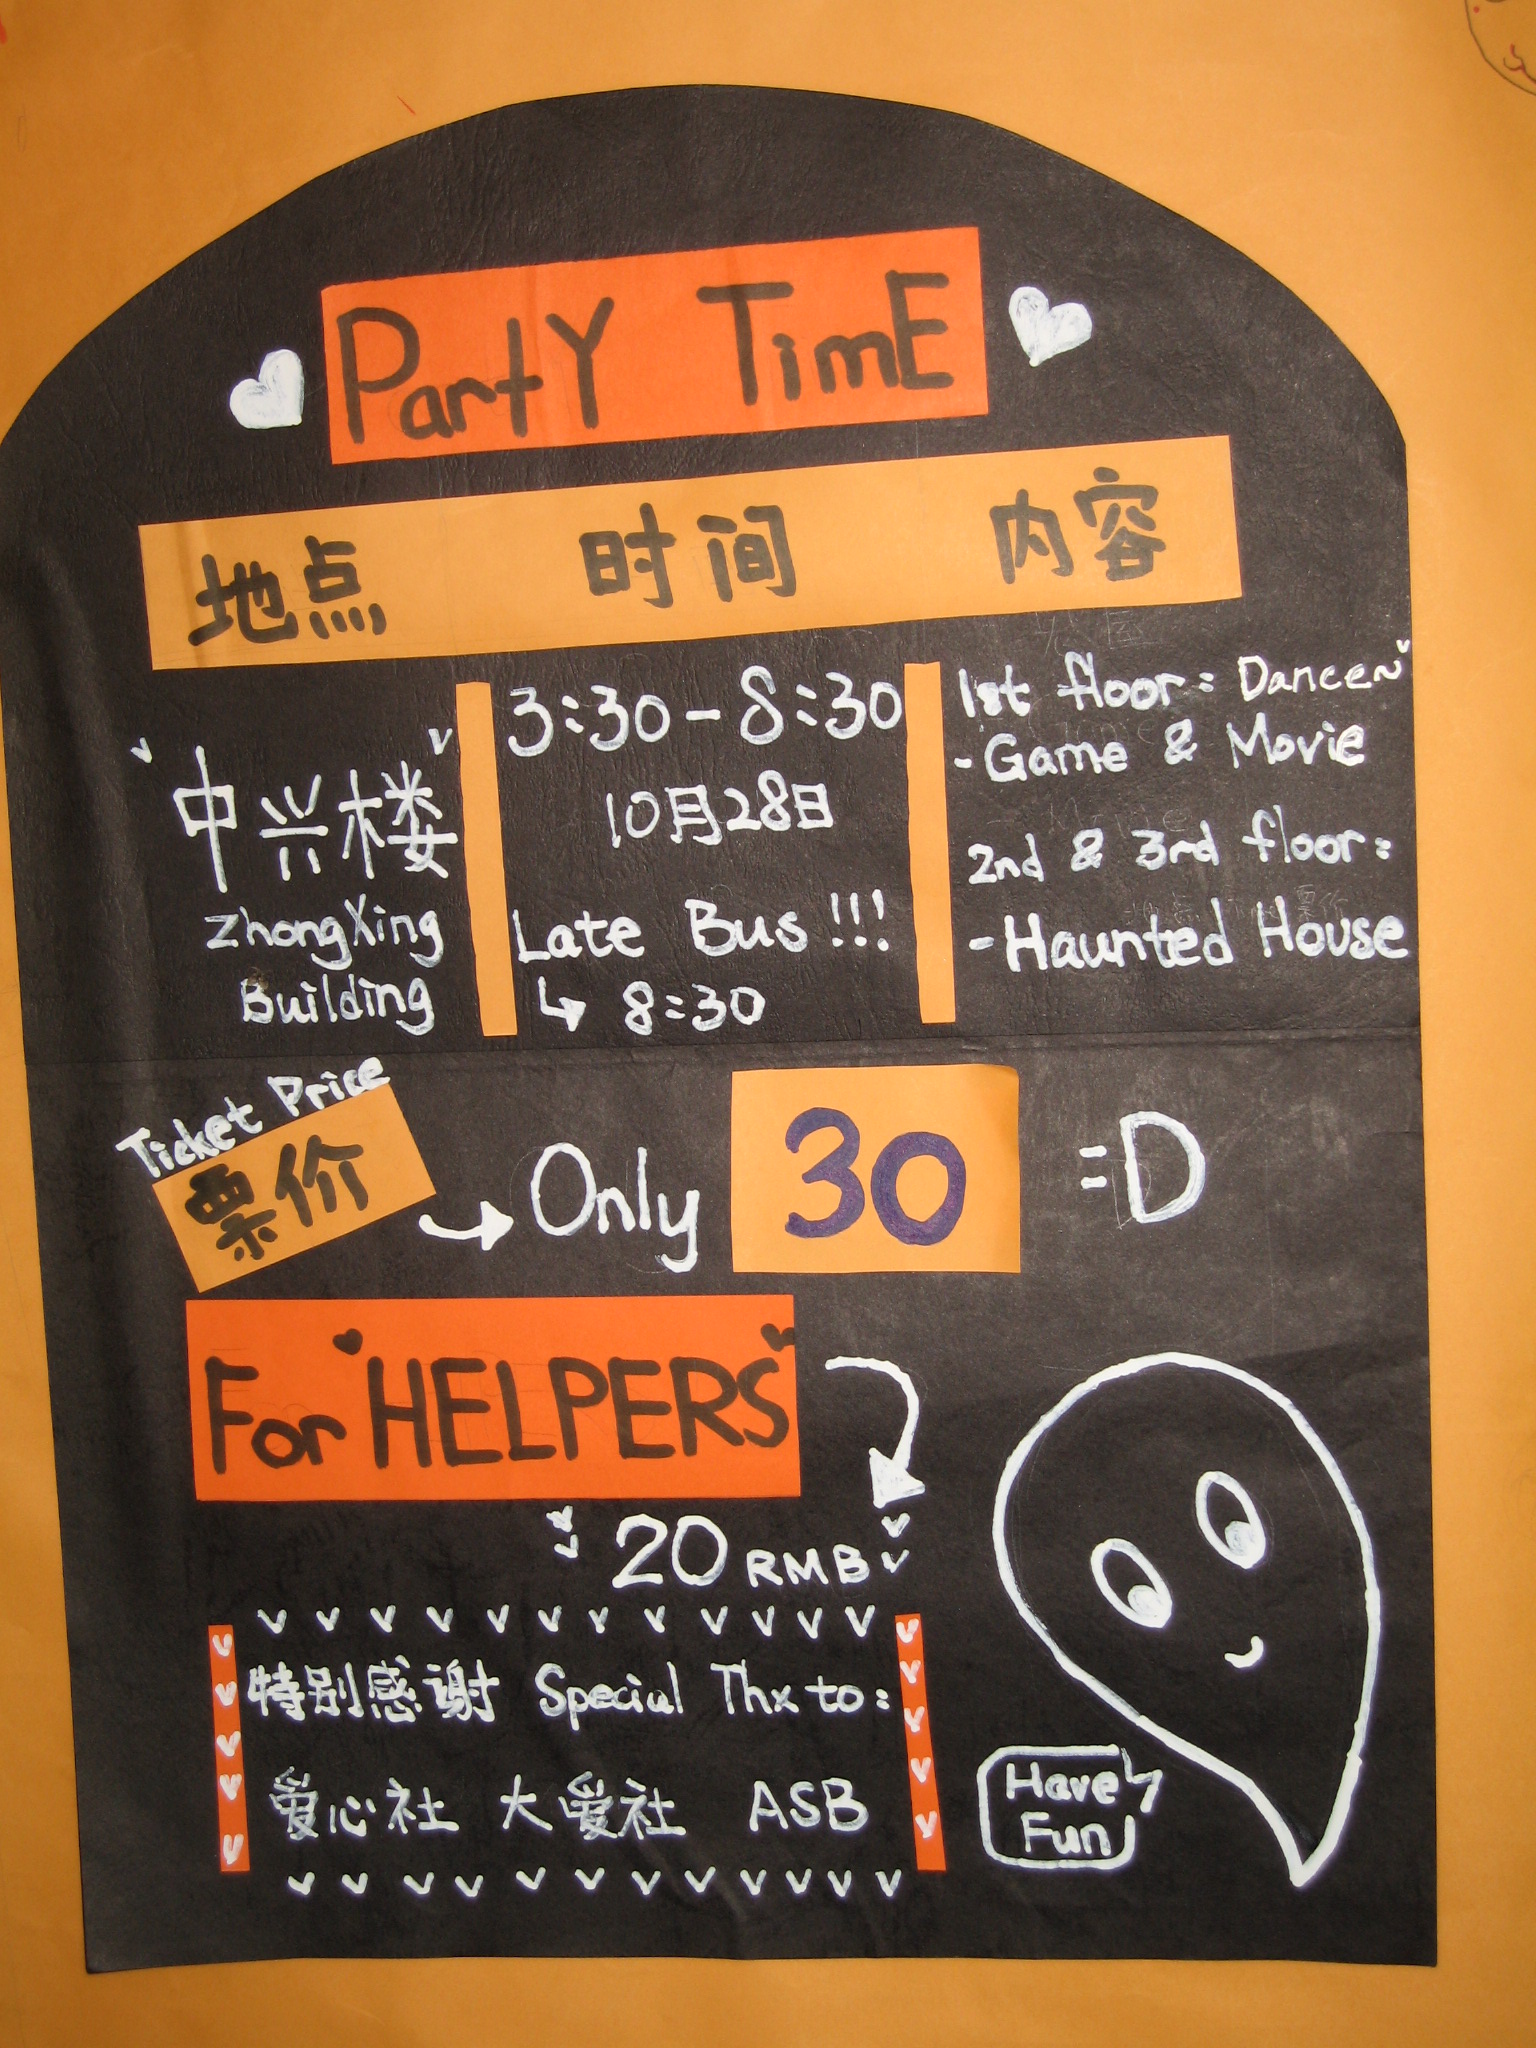 Party TimE
地点 时间 内容
中兴楼
ZhongXing
Building
3:30-8:30
10月28日
Late Bus!!!
8:30
1st floor: Dance~
-Game & Movie
2nd & 3rd floor:
-Haunted House
Ticket Price
票价
Only 30 =D
For "HELPERS"
20 RMB
特别感谢 Special Thx to:
爱心社 大爱社 ASB
Have
Fun